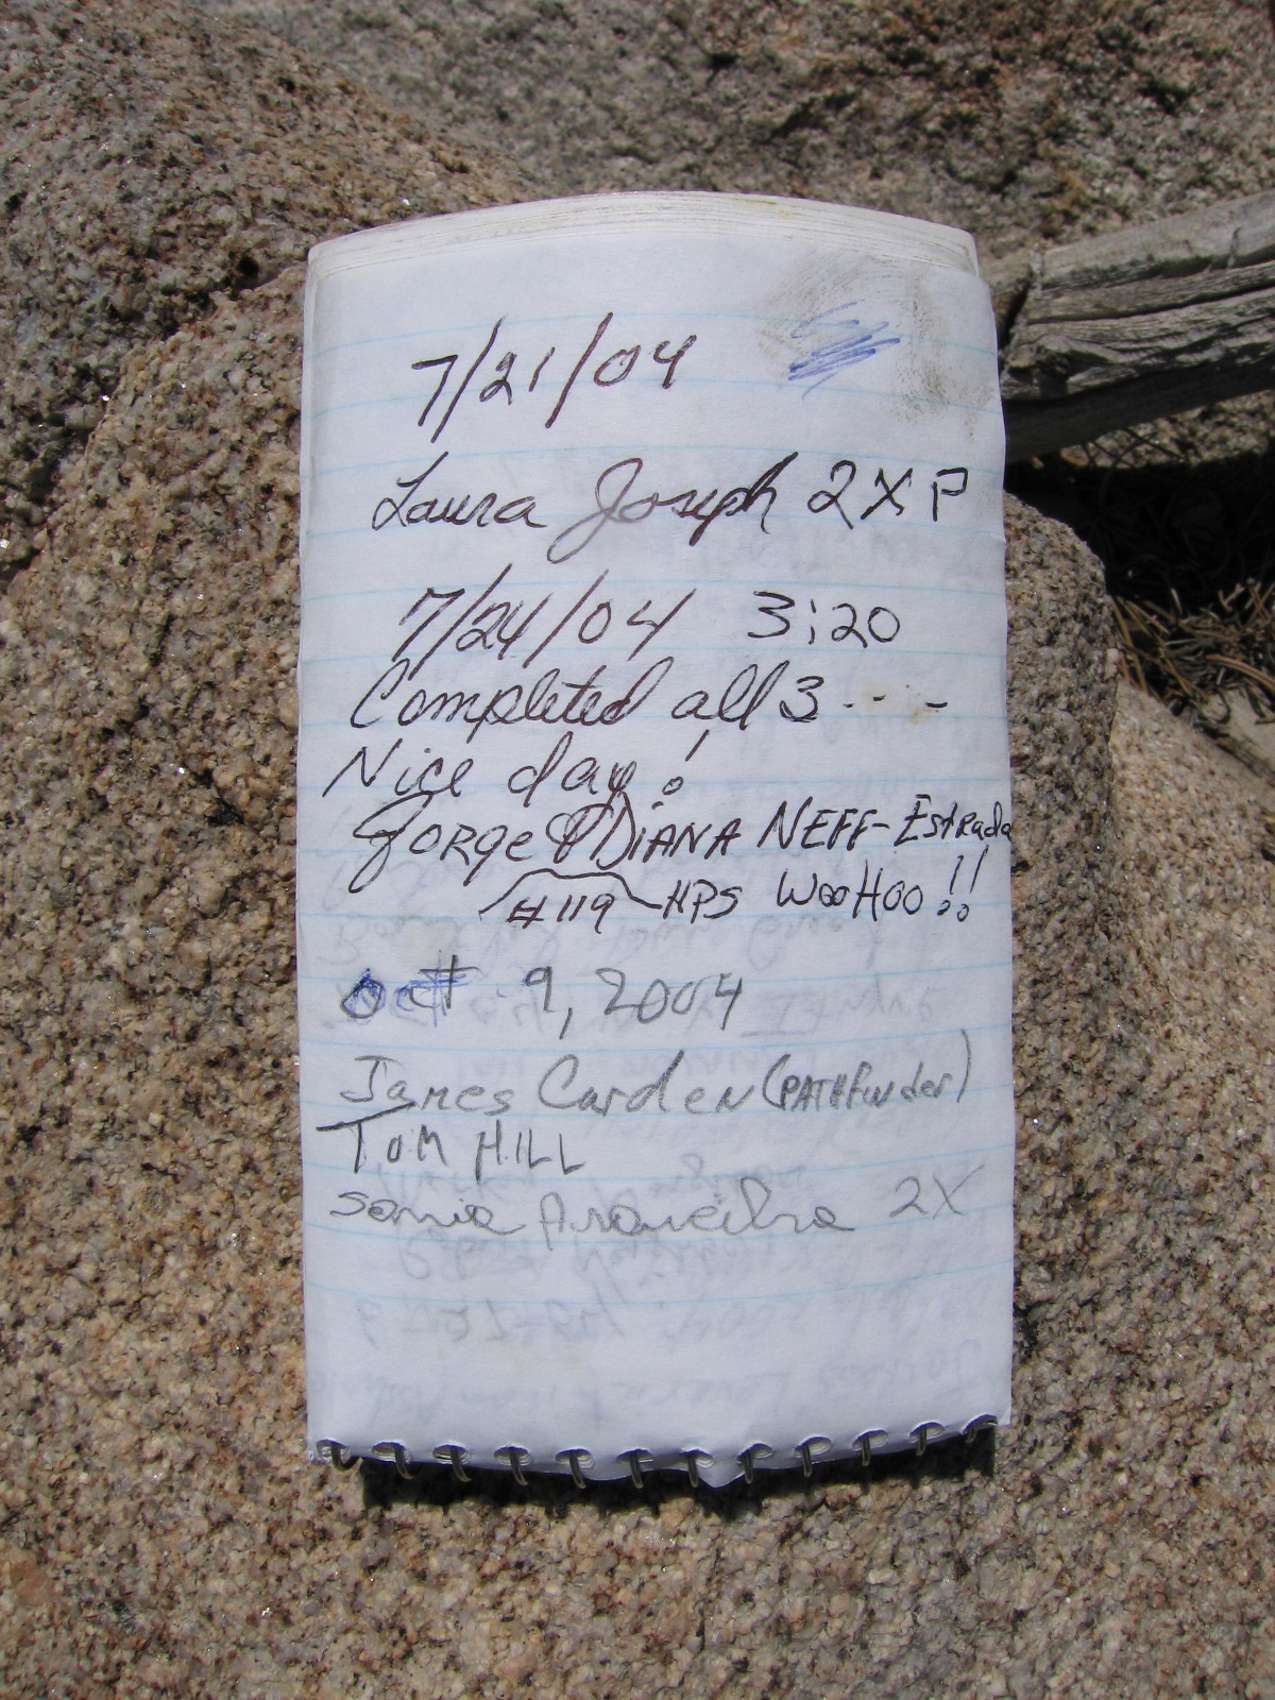 7/21/04
Laura Joseph 2XP
7/24/04 3:20
Completed all 3 - - -
Nice day!
Jorge & DIANA NEFF-Estrada
#119 HPS WooHoo!!
oct 9, 2004
James Carden (PATHFinder)
TOM HILL
Sonia 2X